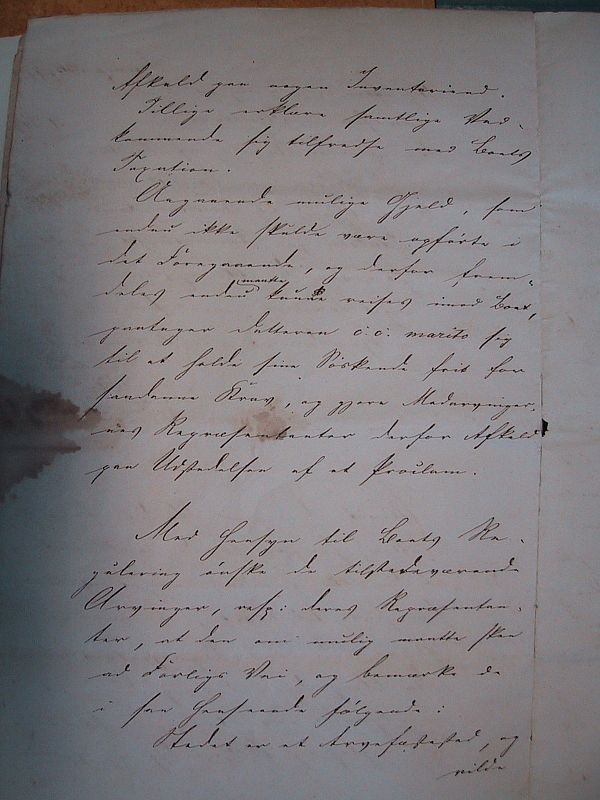 Afkald paa nogen Inventariend.
Tillige erklære samtlige Ved-
kommende sig tilfredse med Boets
Taxation.
Angaaende mulige Gjeld, som
endnu ikke skulde være opførte i
det Foregaaende, og derfor frem-
deles endnu maatte kunne reises imod Boet,
paatager Datteren c.c. marito sig
til at holde sine Søskende frit for
saadanne Krav, og gjøre Medarvinger-
nes Repræsentanter derfor Afkald
paa Udstedelsen af et Proclam.
Med Hensyn til Boets Re-
gulering ønske de tilstedeværende
Arvinger, resp: deres Repræsentan-
ter, at den om mulig maatte skee
ad Forligs Vei, og bemærke de
i saa Henseende følgende:
Stedet er et Arvefæstested, og
vilde